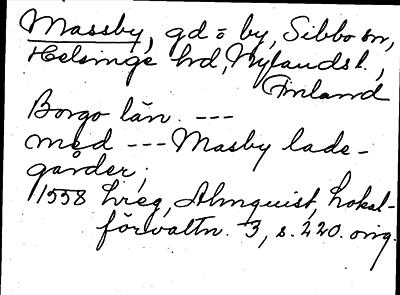 Massby, gd = by, Sibbo sn,
Helsinge hrd, Nylands l.,
Finland
Borgo län. ---
med --- Masby lade-
gårder,
1558 hreg, Almquist, Lokal-
förvaltn. 3, s. 220. orig.